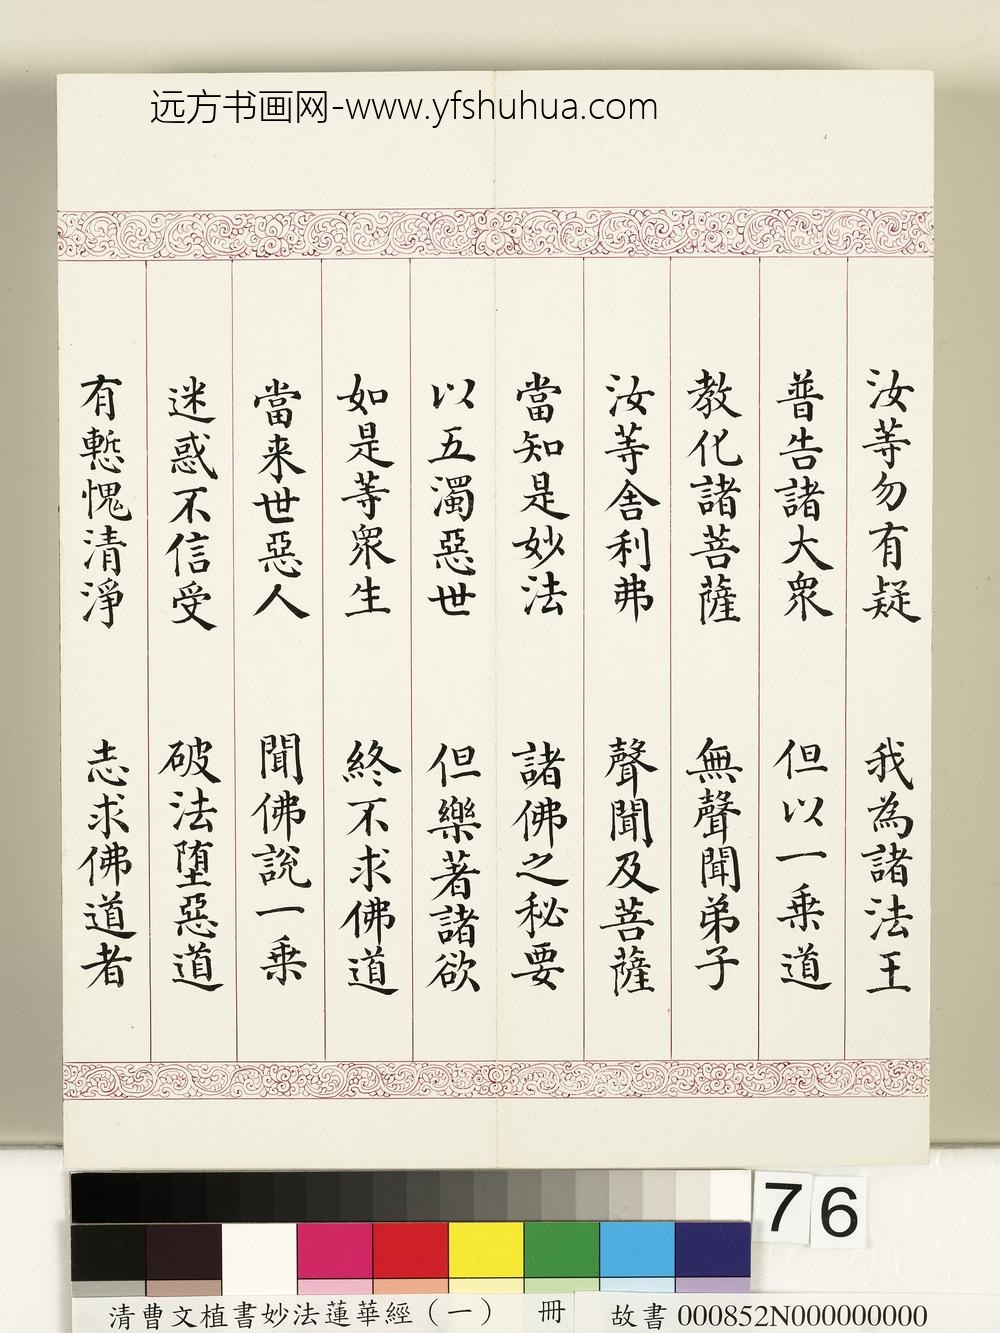 远方书画网-www.yfshuhua.com
汝等勿有疑 我為諸法王
普告諸大衆 但以一乗道
教化諸菩薩 無聲聞弟子
汝等舎利弗 聲聞及菩薩
當知是妙法 諸佛之秘要
以五濁惡世 但樂著諸欲
如是等衆生 終不求佛道
當来世惡人 聞佛說一乗
迷惑不信受 破法堕惡道
有慙愧清淨 志求佛道者
76
清曹文植書妙法蓮華經（一） 冊 故書 000852N000000000